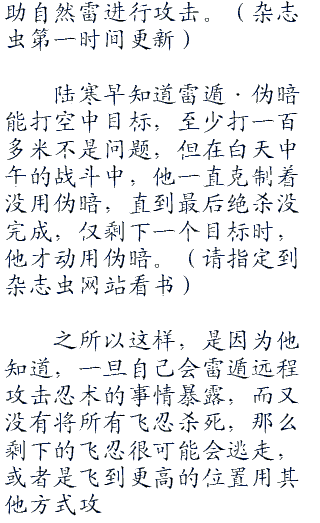 助自然雷进行攻击。（杂志
虫第一时间更新）
陆寒早知道雷遁·伪暗
能打空中目标，至少打一百
多米不是问题，但在白天中
午的战斗中，他一直克制着
没用伪暗，直到最后绝杀没
完成，仅剩下一个目标时，
他才动用伪暗。（请指定到
杂志虫网站看书）
之所以这样，是因为他
知道，一旦自己会雷遁远程
攻击忍术的事情暴露，而又
没有将所有飞忍杀死，那么
剩下的飞忍很可能会逃走，
或者是飞到更高的位置用其
他方式攻